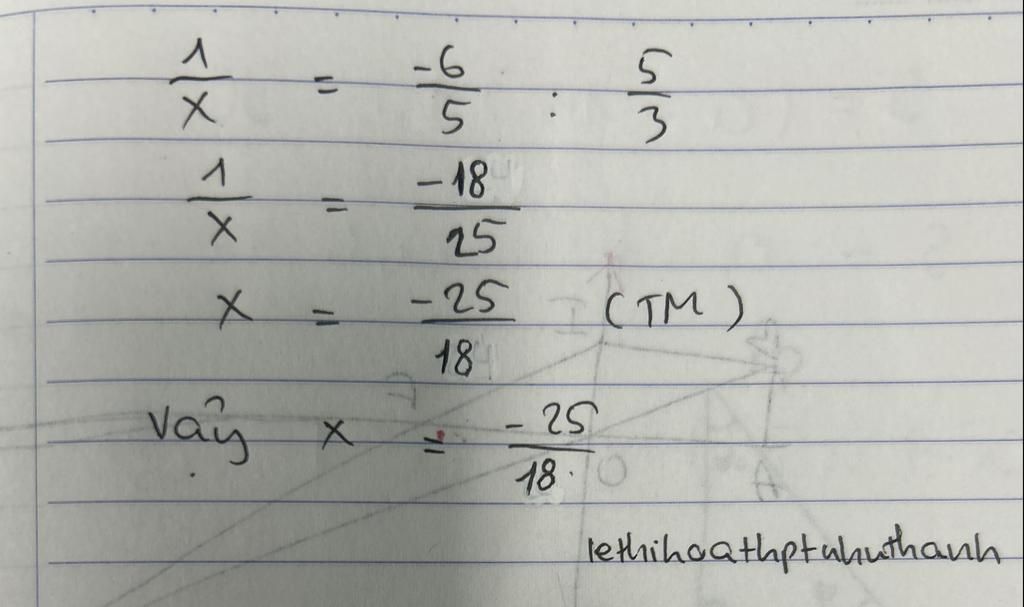 1/x = -6/5 : 5/3
1/x = -18/25
x = -25/18 (TM)
Vậy x = -25/18.
lethihoathptnhuthanh